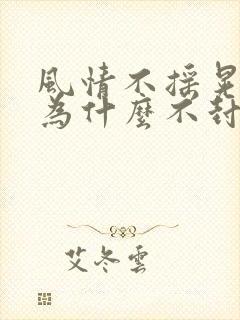 風情不摇晃
為什麼不封
艾冬雲